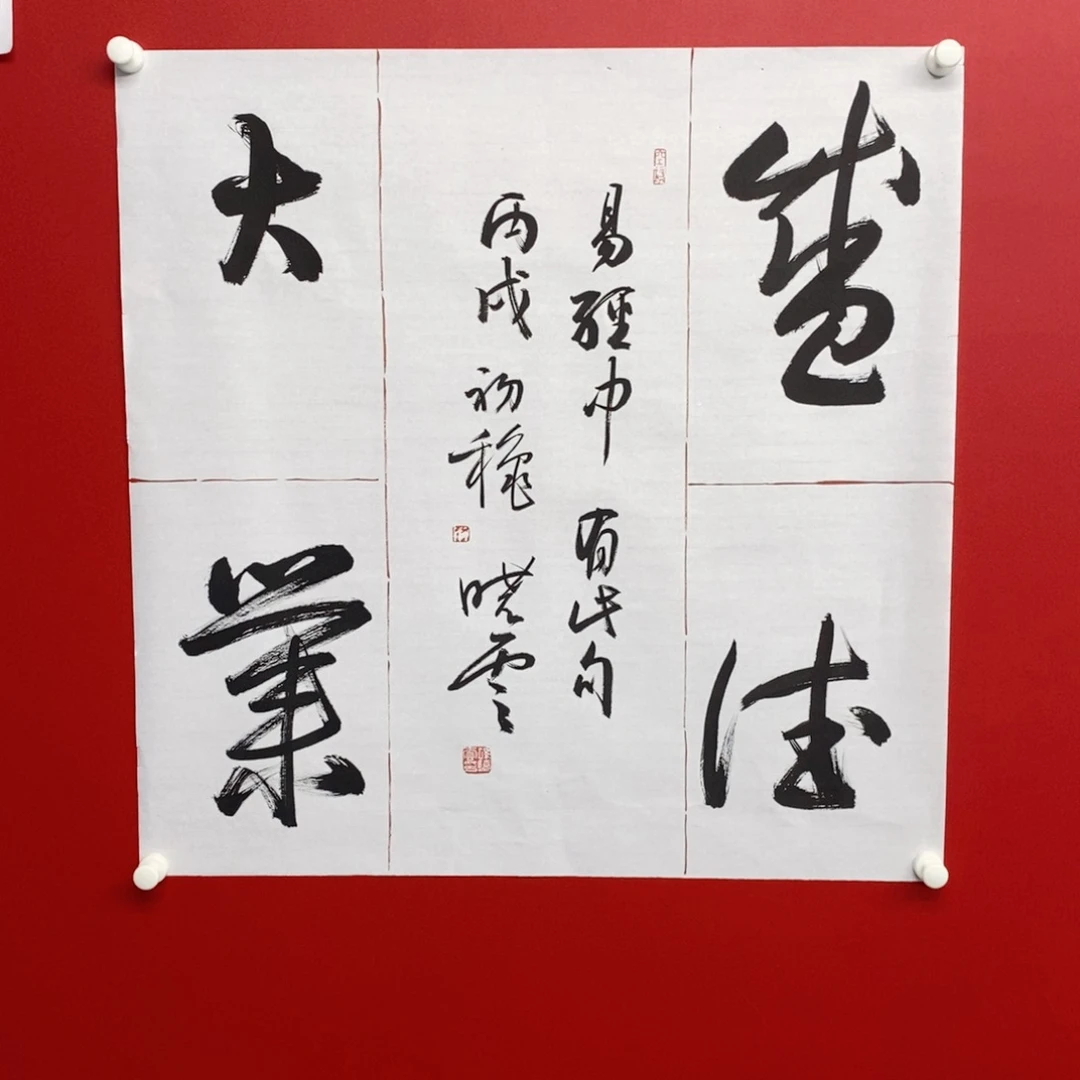 盛德
易經中有此句
丙戌初穐曉雲
大業